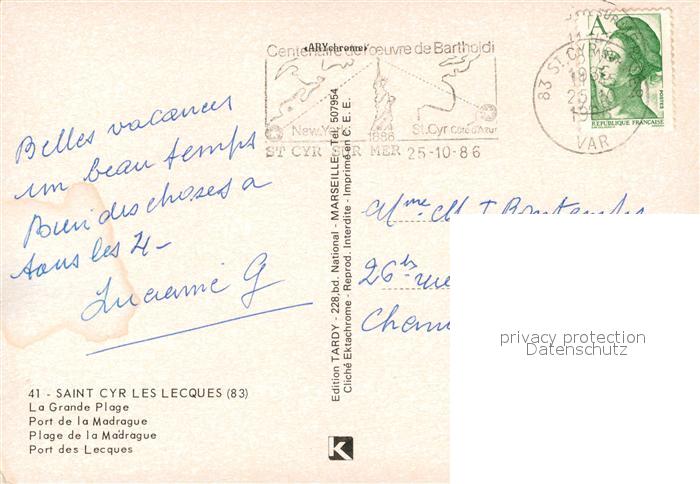 «ARYchrome»
Centenaire de l'œuvre de Bartholdi
New.York 1886 St.Cyr côte d'Azur
ST CYR SUR MER 25-10-86
83 ST CYR
VAR
A
RÉPUBLIQUE FRANÇAISE
LIBERTÉ
Belles vacances
un beau temps
Bien des choses a
tous les 4 -
Lucienne G
Mme
26 bis rue
41 - SAINT CYR LES LECQUES (83)
La Grande Plage
Port de la Madrague
Plage de la Madrague
Port des Lecques
Edition TARDY - 228, bd. National - MARSEILLE - Tél. 507954
Cliché Ektachrome - Reprod. Interdite - Imprimé en C. E. E.
K
privacy protection
Datenschutz